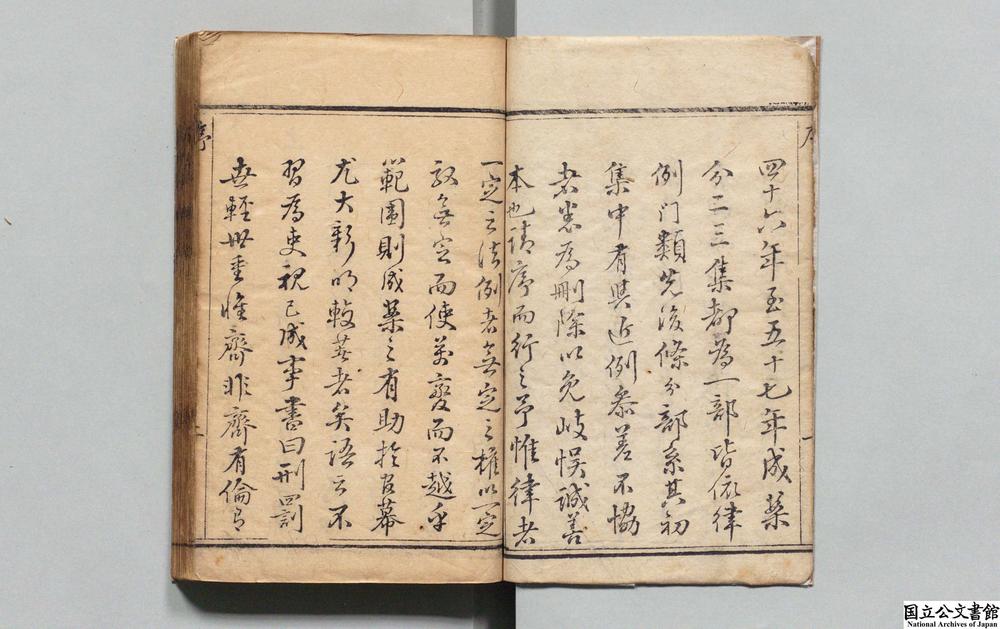 四十六年至五十七年成案
分二三集都為一部皆依律
例门類先後條分部系其初
集中有與近例參差不恊
者悉為刪除以免歧悮誠善
本也請序而行之予惟律者
一定之法例者無定之權以一定
馭無定而使萬變而不越乎
範圍則成案之有助於官幕
尤大彰明較著者矣語云不
習為吏視已成事書曰刑罰
世輕世重惟齊非齊有倫有
序
序
一
一
国立公文書館
National Archives of Japan